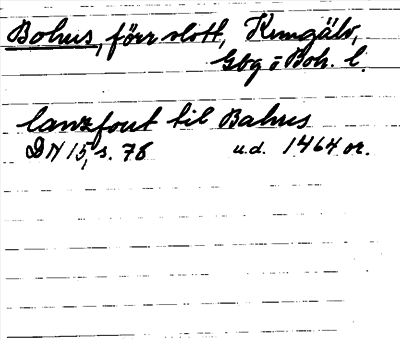 Bohus, förr slott, Kungälv,
Gbg o Boh. l.
lanzfout til Bahus
DN 15, s. 78 u.d. 1464 or.